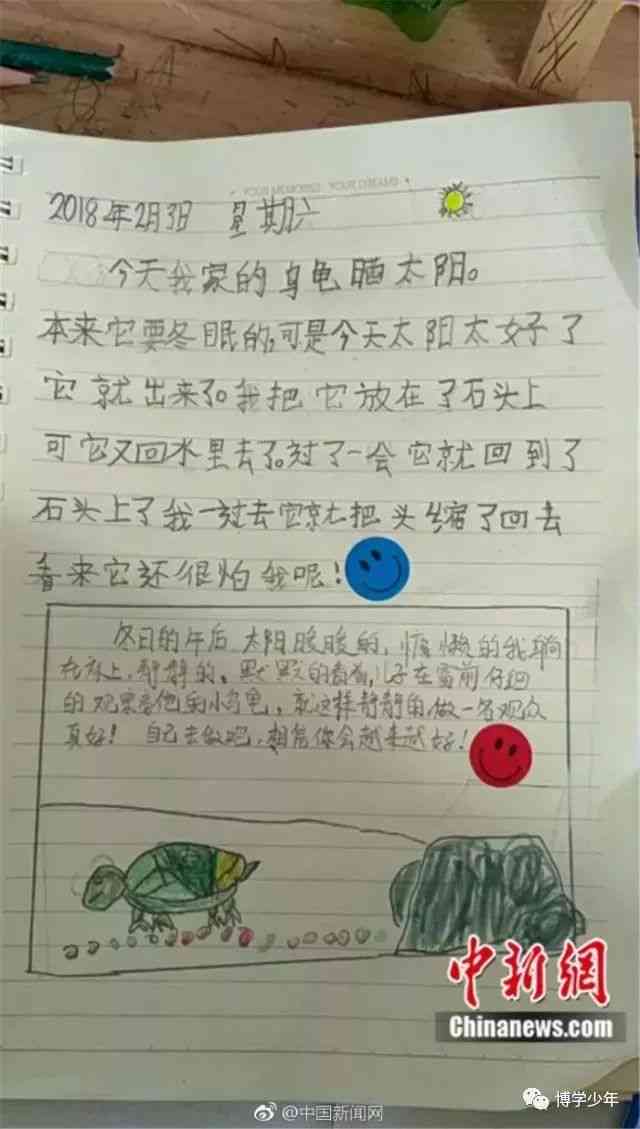 2018年2月3日 星期六
今天我家的乌龟晒太阳。
本来它要冬眠的,可是今天太阳太好了
它就出来了。我把它放在了石头上
可它又回水里去了。过了一会它就回到了
石头上了我一过去它就把头缩了回去
看来它还很怕我呢!
冬日的午后 太阳暖暖的,慵懒的我躺
在床上,静静的、默默的看着儿子在窗前仔细
的观察着他的小乌龟。就这样静静的做一名观众
真好! 自己去做吧,相信你会越来越好!
中新網
Chinanews.com
博学少年
@中国新闻网